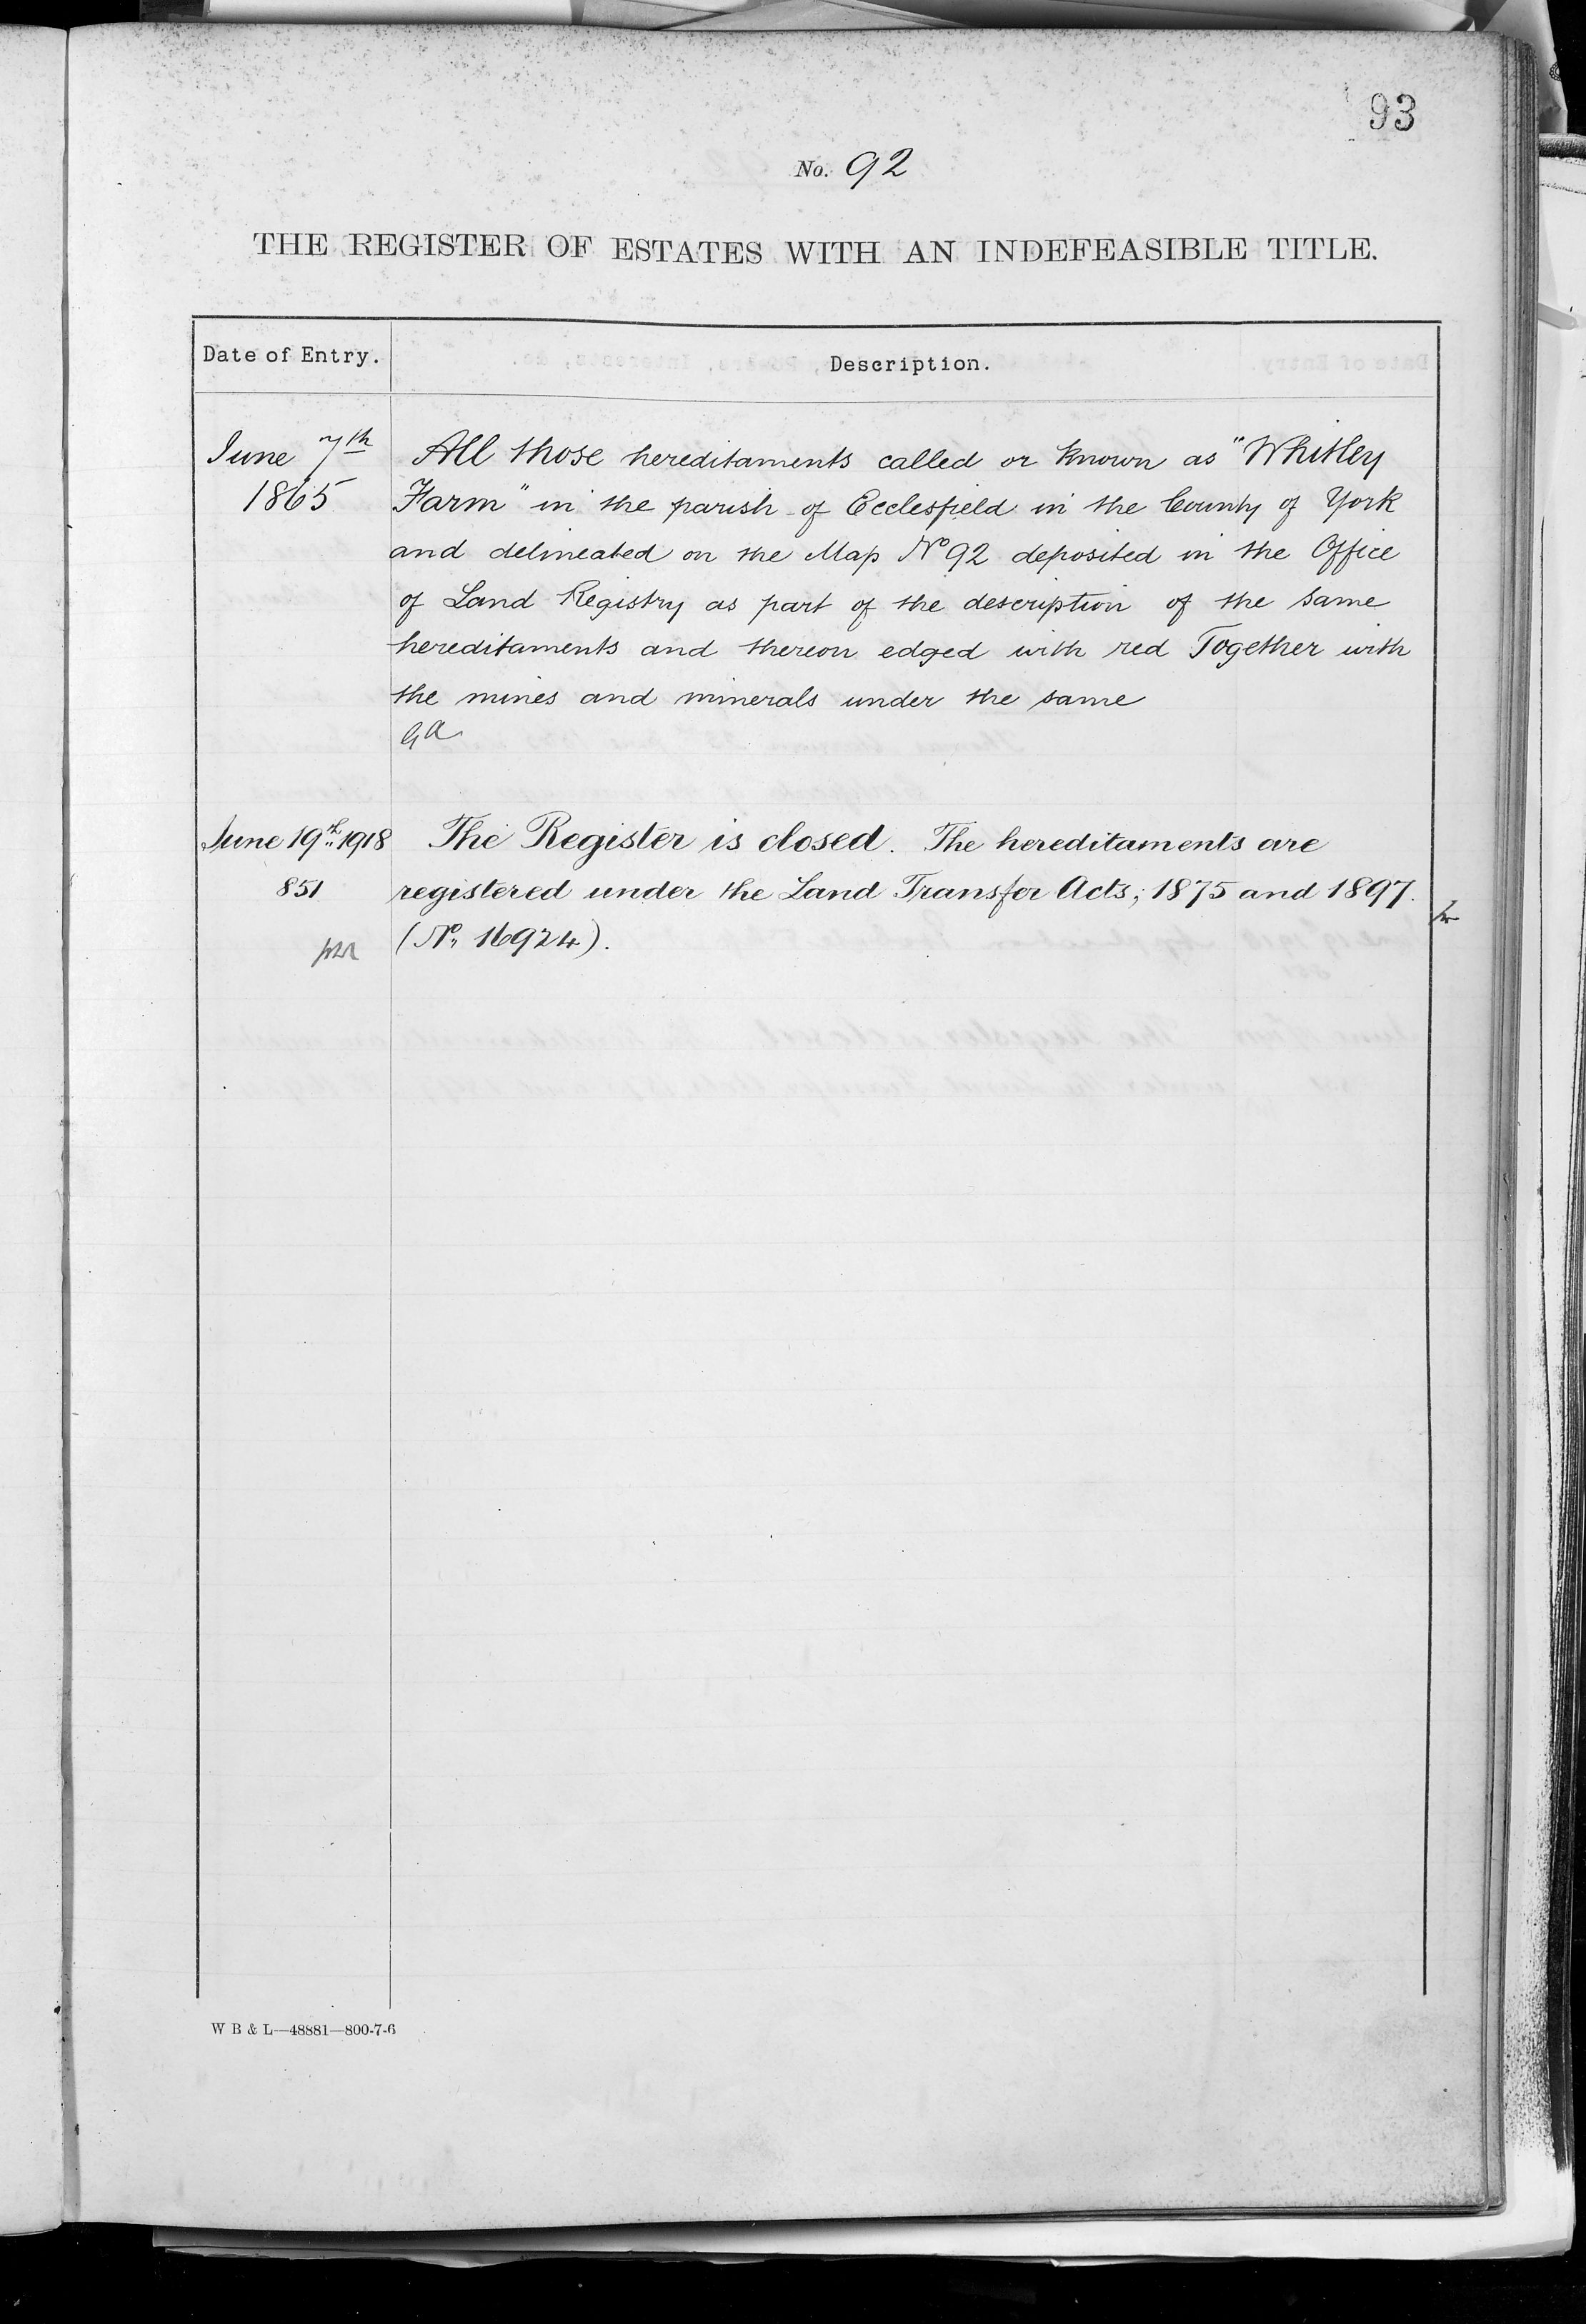 93
No. 92
THE REGISTER OF ESTATES WITH AN INDEFEASIBLE TITLE.
Date of Entry.
Description.
June 7th
1865
All those hereditaments called or known as "Whitley
Farm" in the parish of Ecclesfield in the County of York
and delineated on the Map No 92 deposited in the Office
of Land Registry as part of the description of the same
hereditaments and thereon edged with red Together with
the mines and minerals under the same
Ga
June 19th 1918
851
The Register is closed. The hereditaments are
registered under the Land Transfer Acts, 1875 and 1897.
(No. 16924).
W B & L—48881—800-7-6